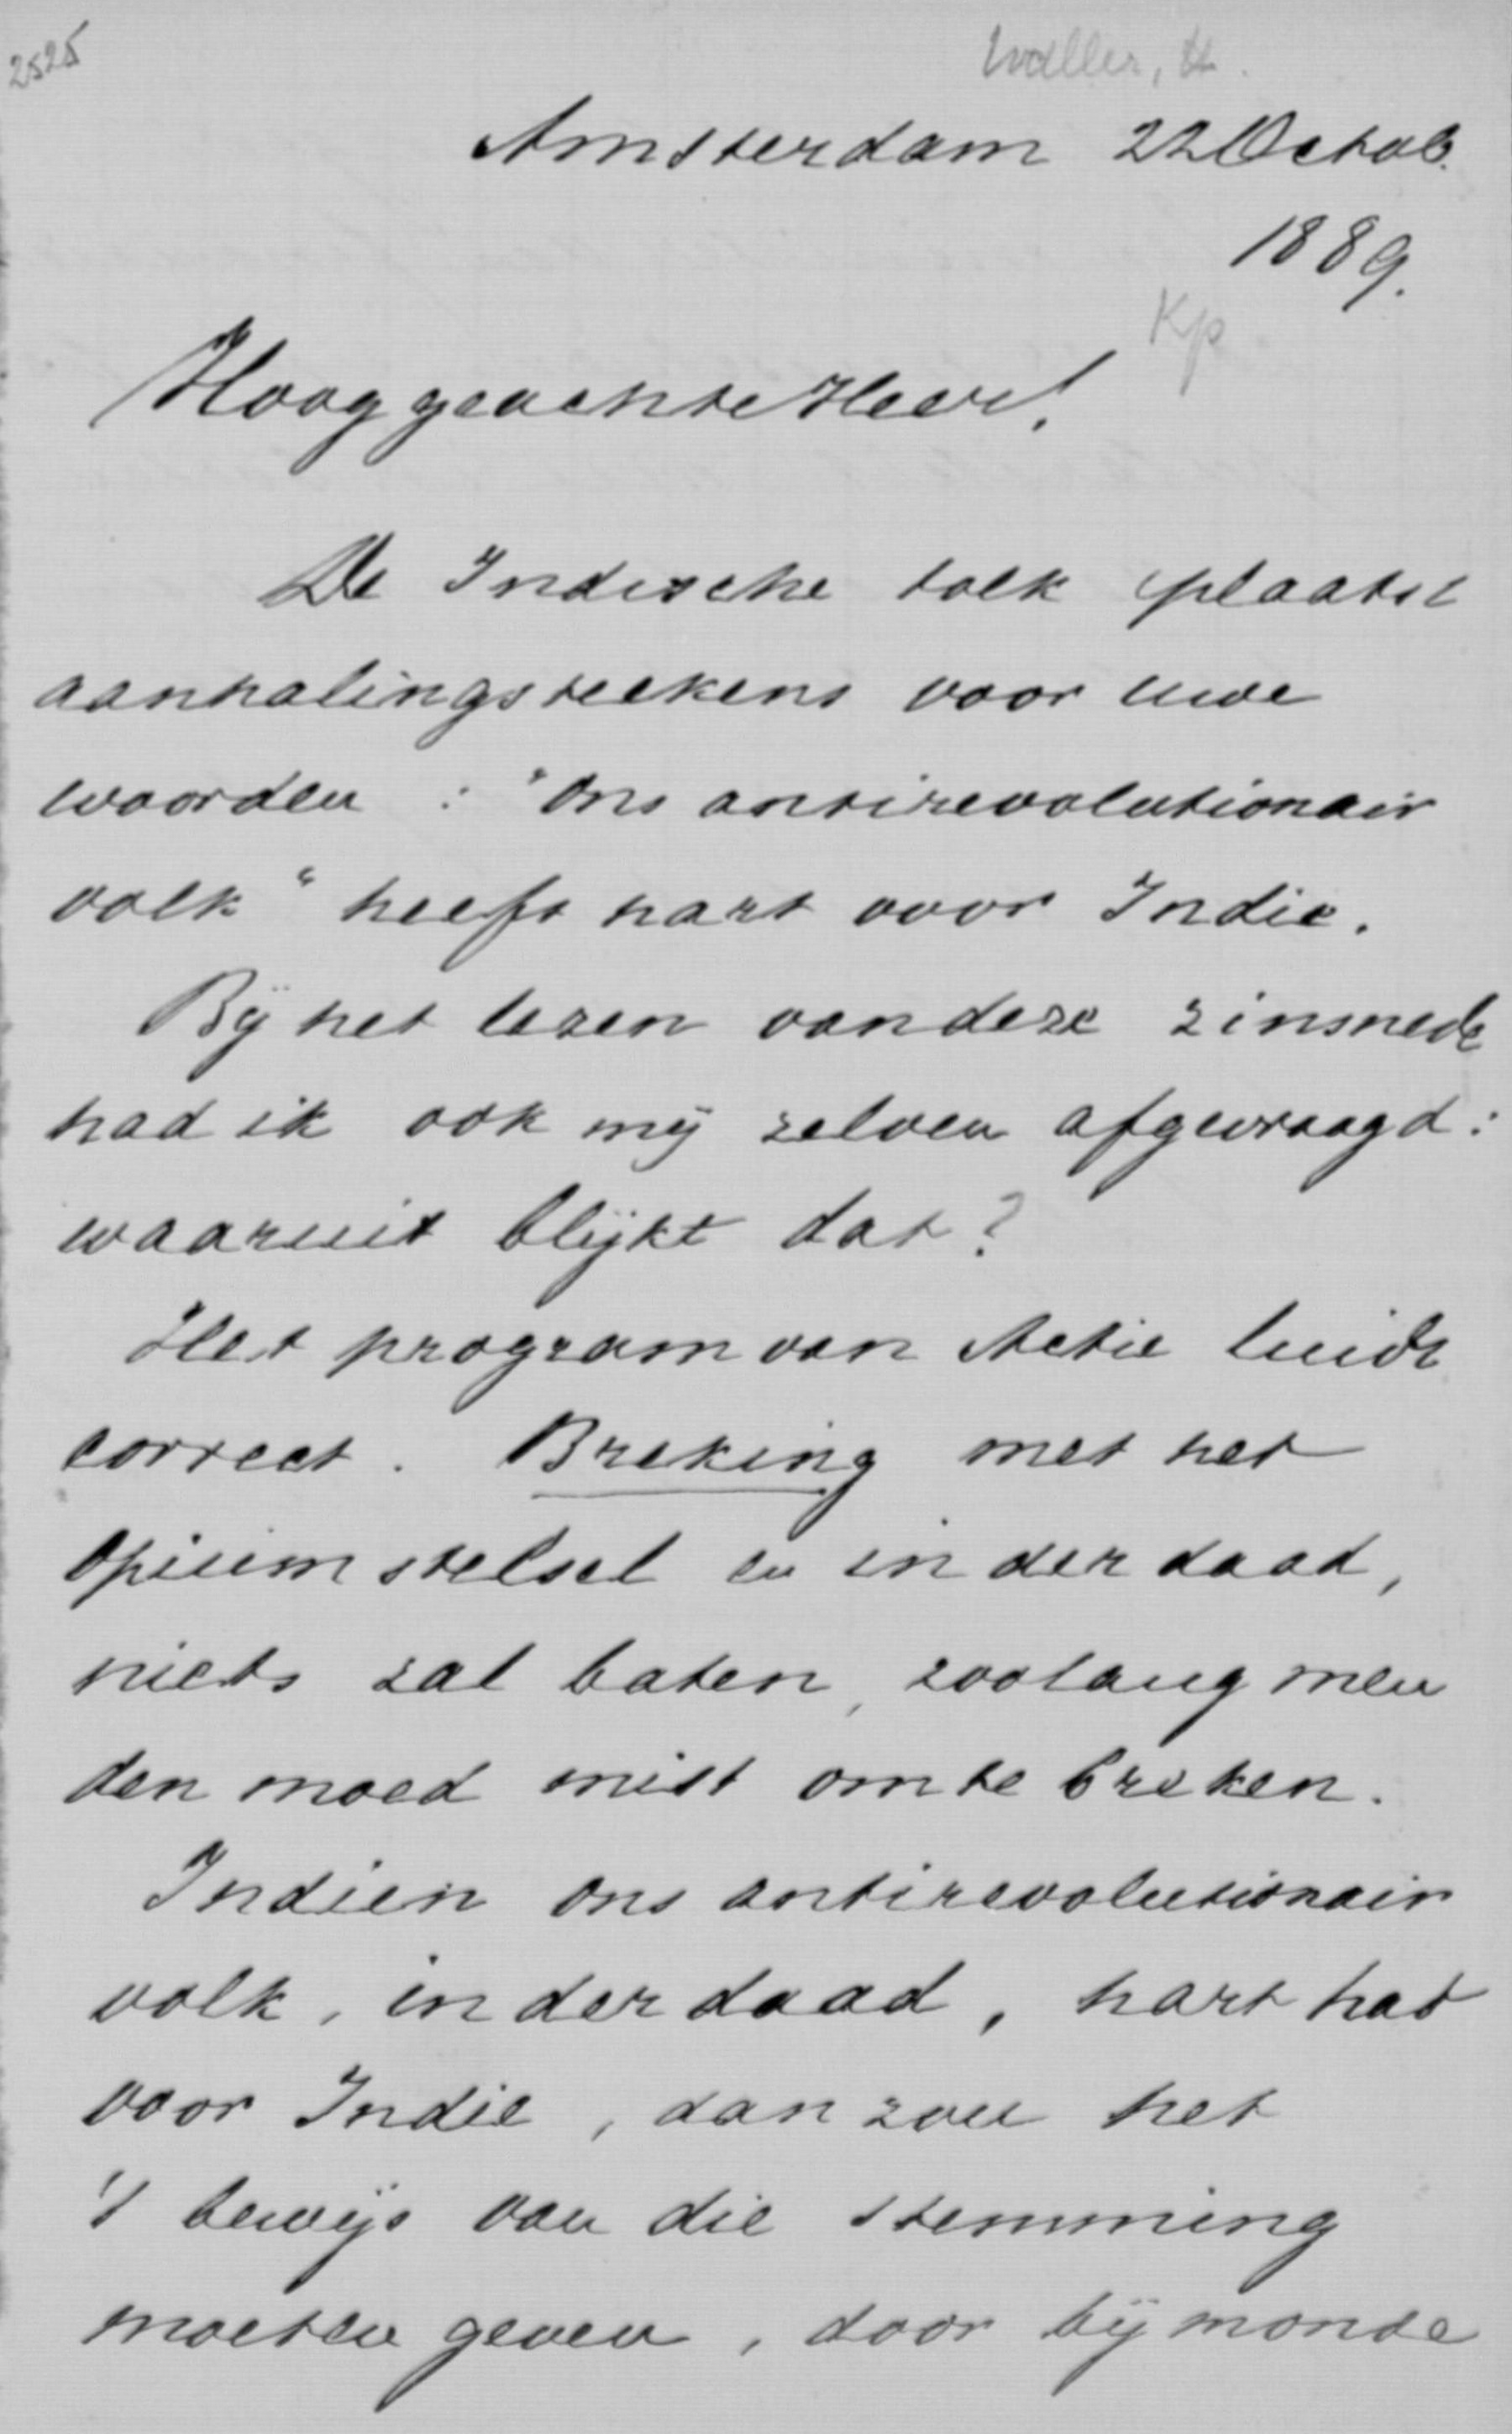 2525
Waller, H.
Amsterdam 22 Octob.
1889.
Kp
Hooggeachte Heer!
De Indische tolk plaatst
aanhalingsteekens voor uwe
woorden : "Ons antirevolutionair
volk" heeft hart voor Indie.
Bij het lezen van deze zinsnede
had ik ook mij zelven afgevraagd:
waaruit blijkt dat?
Het program van Actie luidt
correct. Breking met het
Opiumstelsel en inderdaad,
niets zal baten, zoolang men
den moed mist om te breken.
Indien ons antirevolutionair
volk, inderdaad, hart had
voor Indie, dan zou het
't bewijs van die stemming
moeten geven, door bij monde